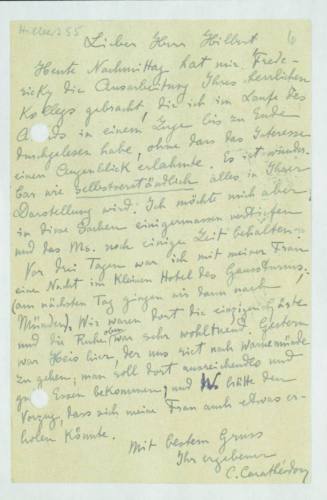 Hilbert 55
6
Lieber Herr Hilbert
Heute Nachmittag hat mir Frede-
ricky die Ausarbeitung Ihres herrlichen
Kollegs gebracht, die ich im Laufe des
Abends in einem Zuge bis zu Ende
durchgelesen habe, ohne dass das Interesse
einen Augenblick erlahmte. Es ist wunder-
bar wie selbstverständlich alles in Ihrer
Darstellung wird. Ich möchte mich aber
in diese Sachen einigermassen vertiefen
und das Ms. noch einige Zeit behalten.
Vor drei Tagen war ich mit meiner Frau
eine Nacht im kleinen Hotel des Gaussturms,
(am nächsten Tag gingen wir dann nach
Münden). Wir waren dort die einzigen Gäste
und die Ruhe oben war sehr wohltuend. Gestern
war Heis hier, der uns riet nach Warnemünde
zu gehen; man soll dort ausreichendes und
gutes Essen bekommen; und hätte den
Vorzug, dass sich meine Frau auch etwas er-
holen könnte.
Mit bestem Gruss
Ihr ergebener
C. Carathéodory